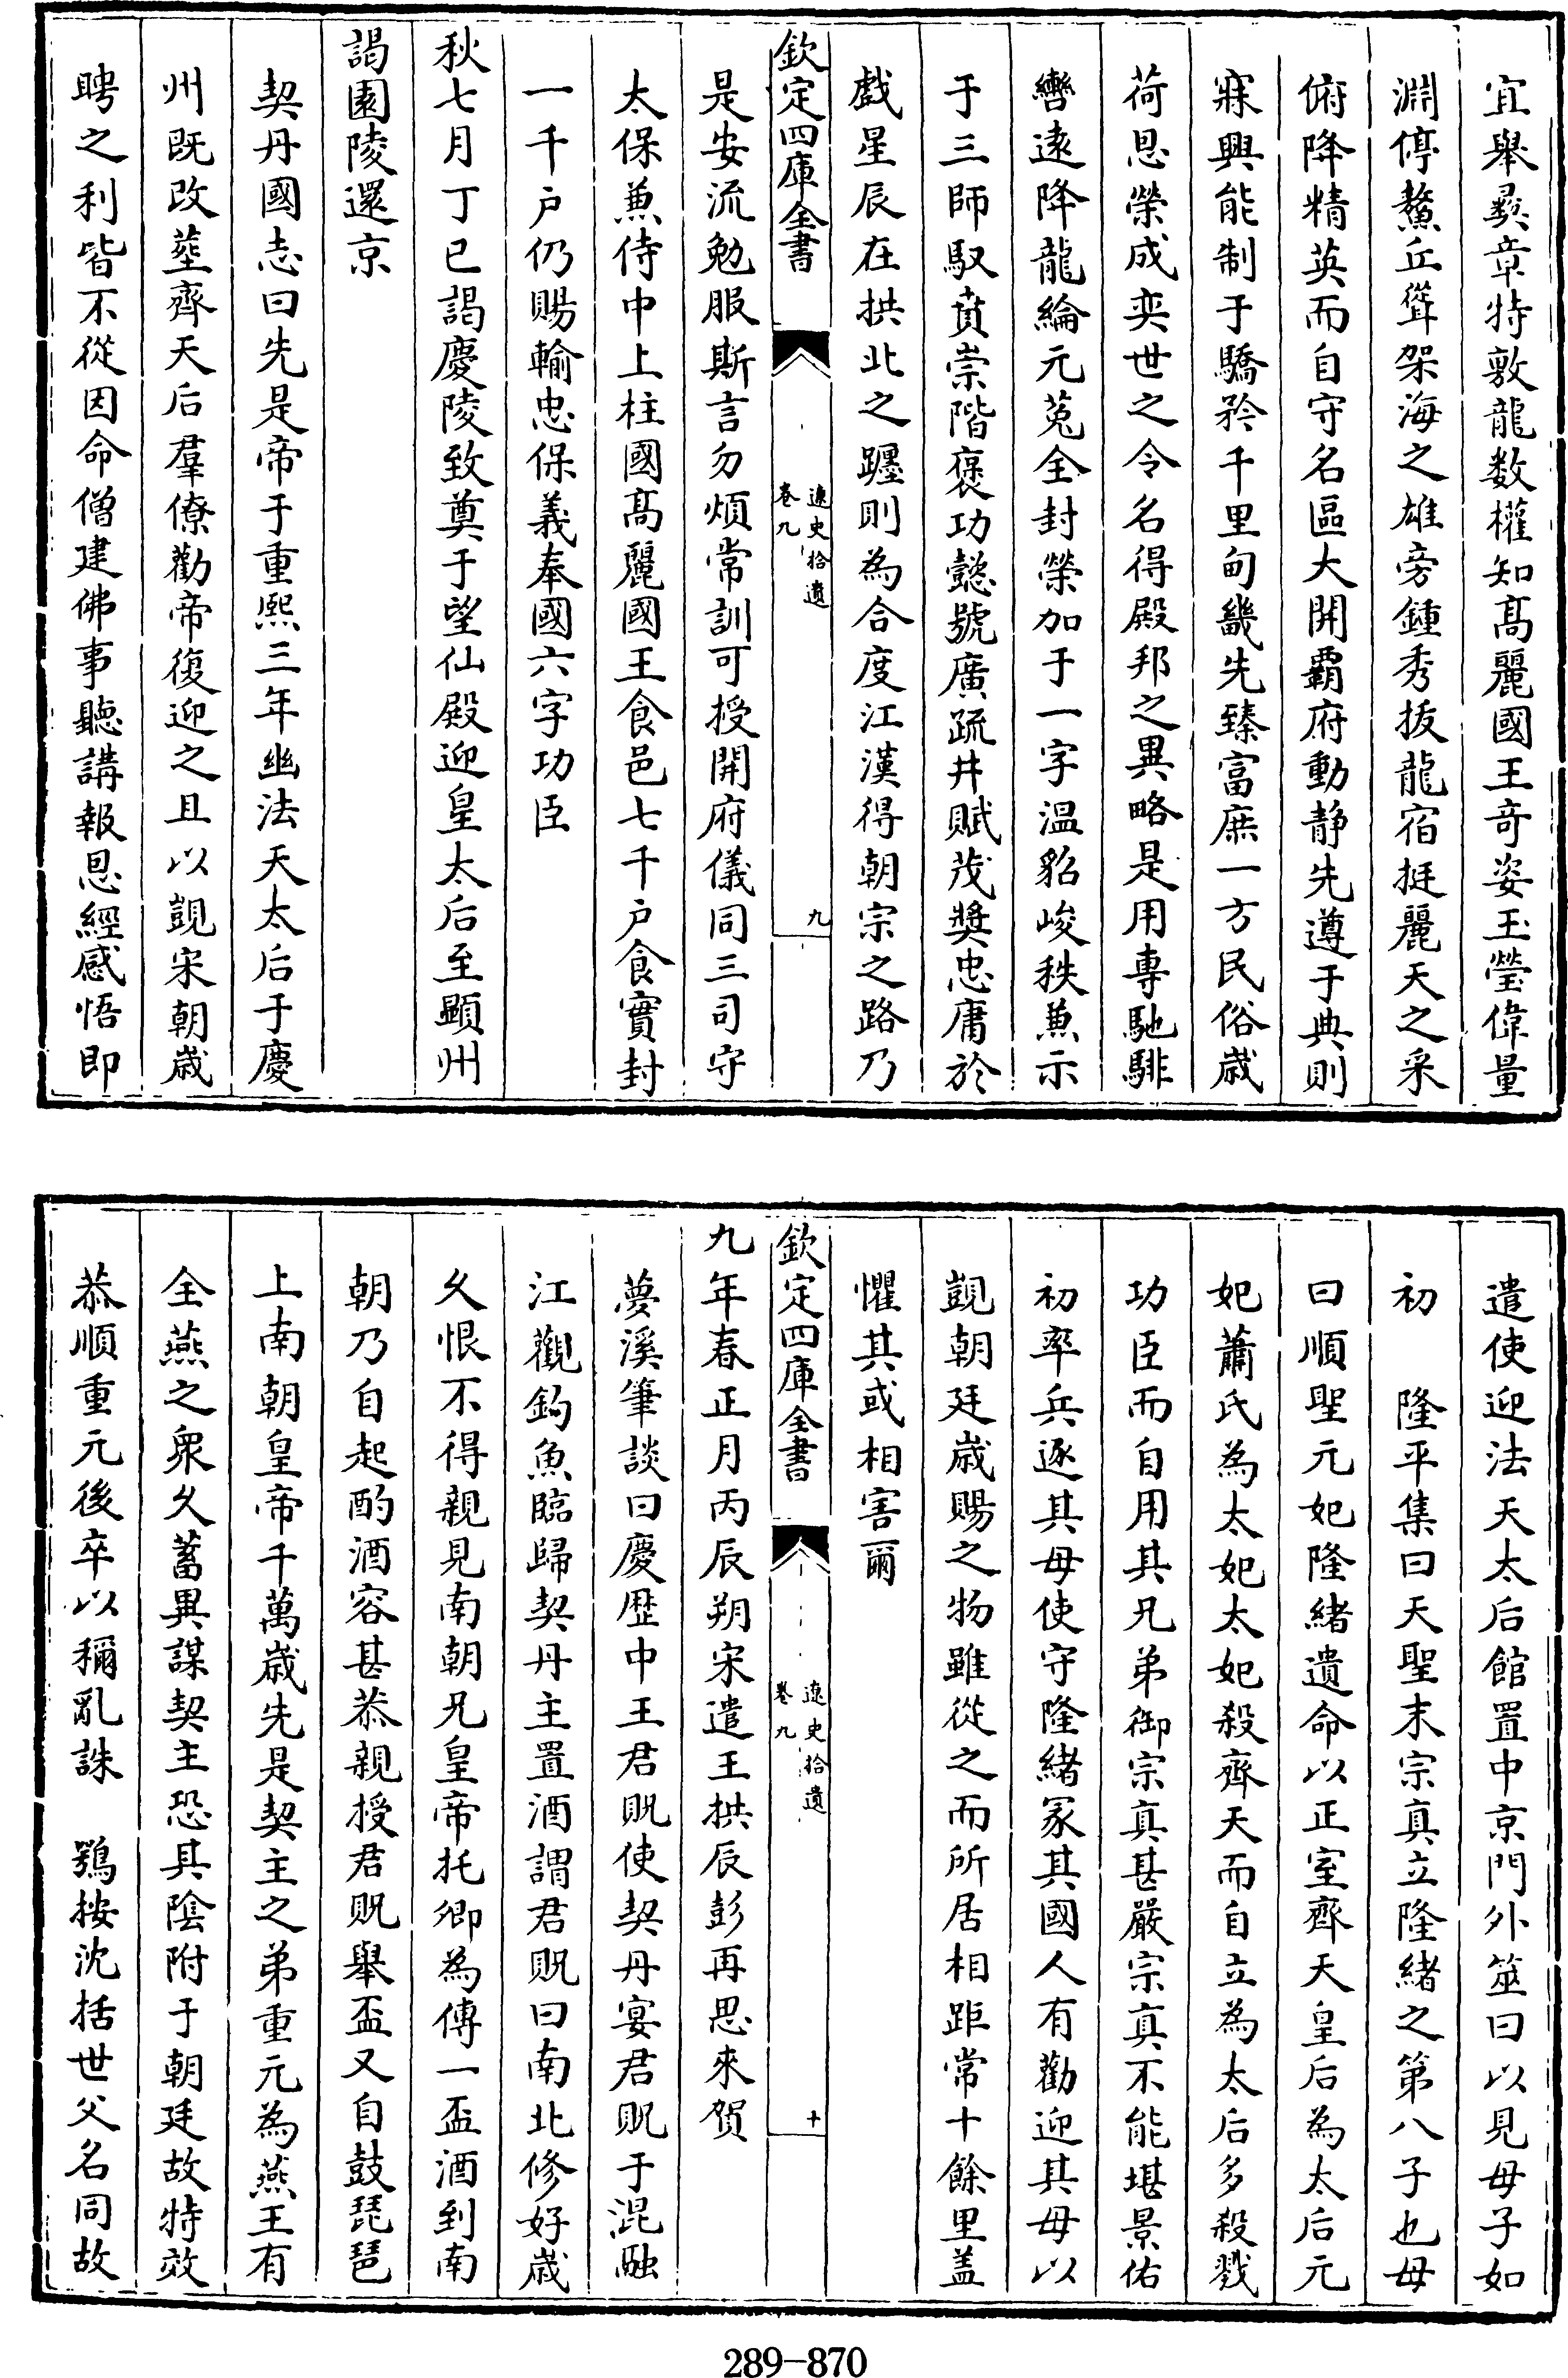 宜舉彞章特敦龍数權知髙麗國王竒姿玉瑩偉量
淵停鰲丘聳架海之雄旁鍾秀拔龍宿挺麗天之采
俯降精英而自守名區大開覇府動静先遵于典則
寐興能制于驕矜千里甸畿先臻富庶一方民俗嵗
荷恩榮成奕世之令名得殿邦之異略是用專馳騑
轡逺降龍綸元菟全封榮加于一字温貂峻秩兼示
于三師馭貴崇階褒功懿號廣疏井賦茂奬忠庸於
戲星辰在拱北之躔則為合度江漢得朝宗之路乃
欽定四庫全書
遼史拾遺
卷九
九
是安流勉服斯言勿煩常訓可授開府儀同三司守
太保兼侍中上柱國髙麗國王食邑七千户食實封
一千户仍賜輸忠保義奉國六字功臣
秋七月丁巳謁慶陵致奠于望仙殿迎皇太后至顯州
謁園陵還京
契丹國志曰先是帝于重熙三年幽法天太后于慶
州既改塟齊天后羣僚勸帝復迎之且以覬宋朝嵗
聘之利皆不從因命僧建佛事聽講報恩經感悟即
遣使迎法天太后館置中京門外筮曰以見母子如
初　隆平集曰天聖末宗真立隆緒之第八子也母
曰順聖元妃隆緒遺命以正室齊天皇后為太后元
妃蕭氏為太妃太妃殺齊天而自立為太后多殺戮
功臣而自用其兄弟御宗真甚嚴宗真不能堪景佑
初率兵逐其母使守隆緒冡其國人有勸迎其母以
覬朝廷嵗賜之物雖從之而所居相距常十餘里盖
懼其或相害爾
欽定四庫全書
遼史拾遺
卷九
十
九年春正月丙辰朔宋遣王拱辰彭再思來賀
夢溪筆談曰慶歴中王君貺使契丹宴君貺于混融
江觀釣魚臨歸契丹主置酒謂君貺曰南北修好嵗
乆恨不得親見南朝兄皇帝托卿為傳一盃酒到南
朝乃自起酌酒容甚恭親授君貺舉盃又自鼓琵琶
上南朝皇帝千萬嵗先是契主之弟重元為燕王有
全燕之衆乆蓄異謀契主恐其陰附于朝廷故特效
恭順重元後卒以稱亂誅　鶚按沈括世父名同故
289-870